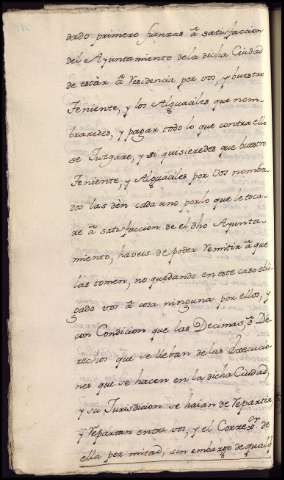 dando primero fianzas â satisfaccion
del Ayuntamiento de la dicha Ciudad
de estàr â residencia por vos, y vuestro
Teniente, y los Alguaciles que nom-
braredes, y pagar todo lo que contra ellos
se Juzgare, y si quisieredes que vuestro
Teniente, y Alguaciles por vos nombra-
dos las dèn cada uno por lo que le toca-
re â satisfaccion de el dho Ayunta-
miento, haveis de poder remitir â que
las tomen, no quedando en este caso obli-
gado vos â cosa ninguna por ellos, y
con Condicion que las Decimas, ô De-
rechos que se lleban de las Execucio-
nes que se hacen en la dicha Ciudad,
y su Jurisdicion se haian de repartir
y repartan entre vos, y el Corregor. de
ella por mitad, sin embargo de qualq